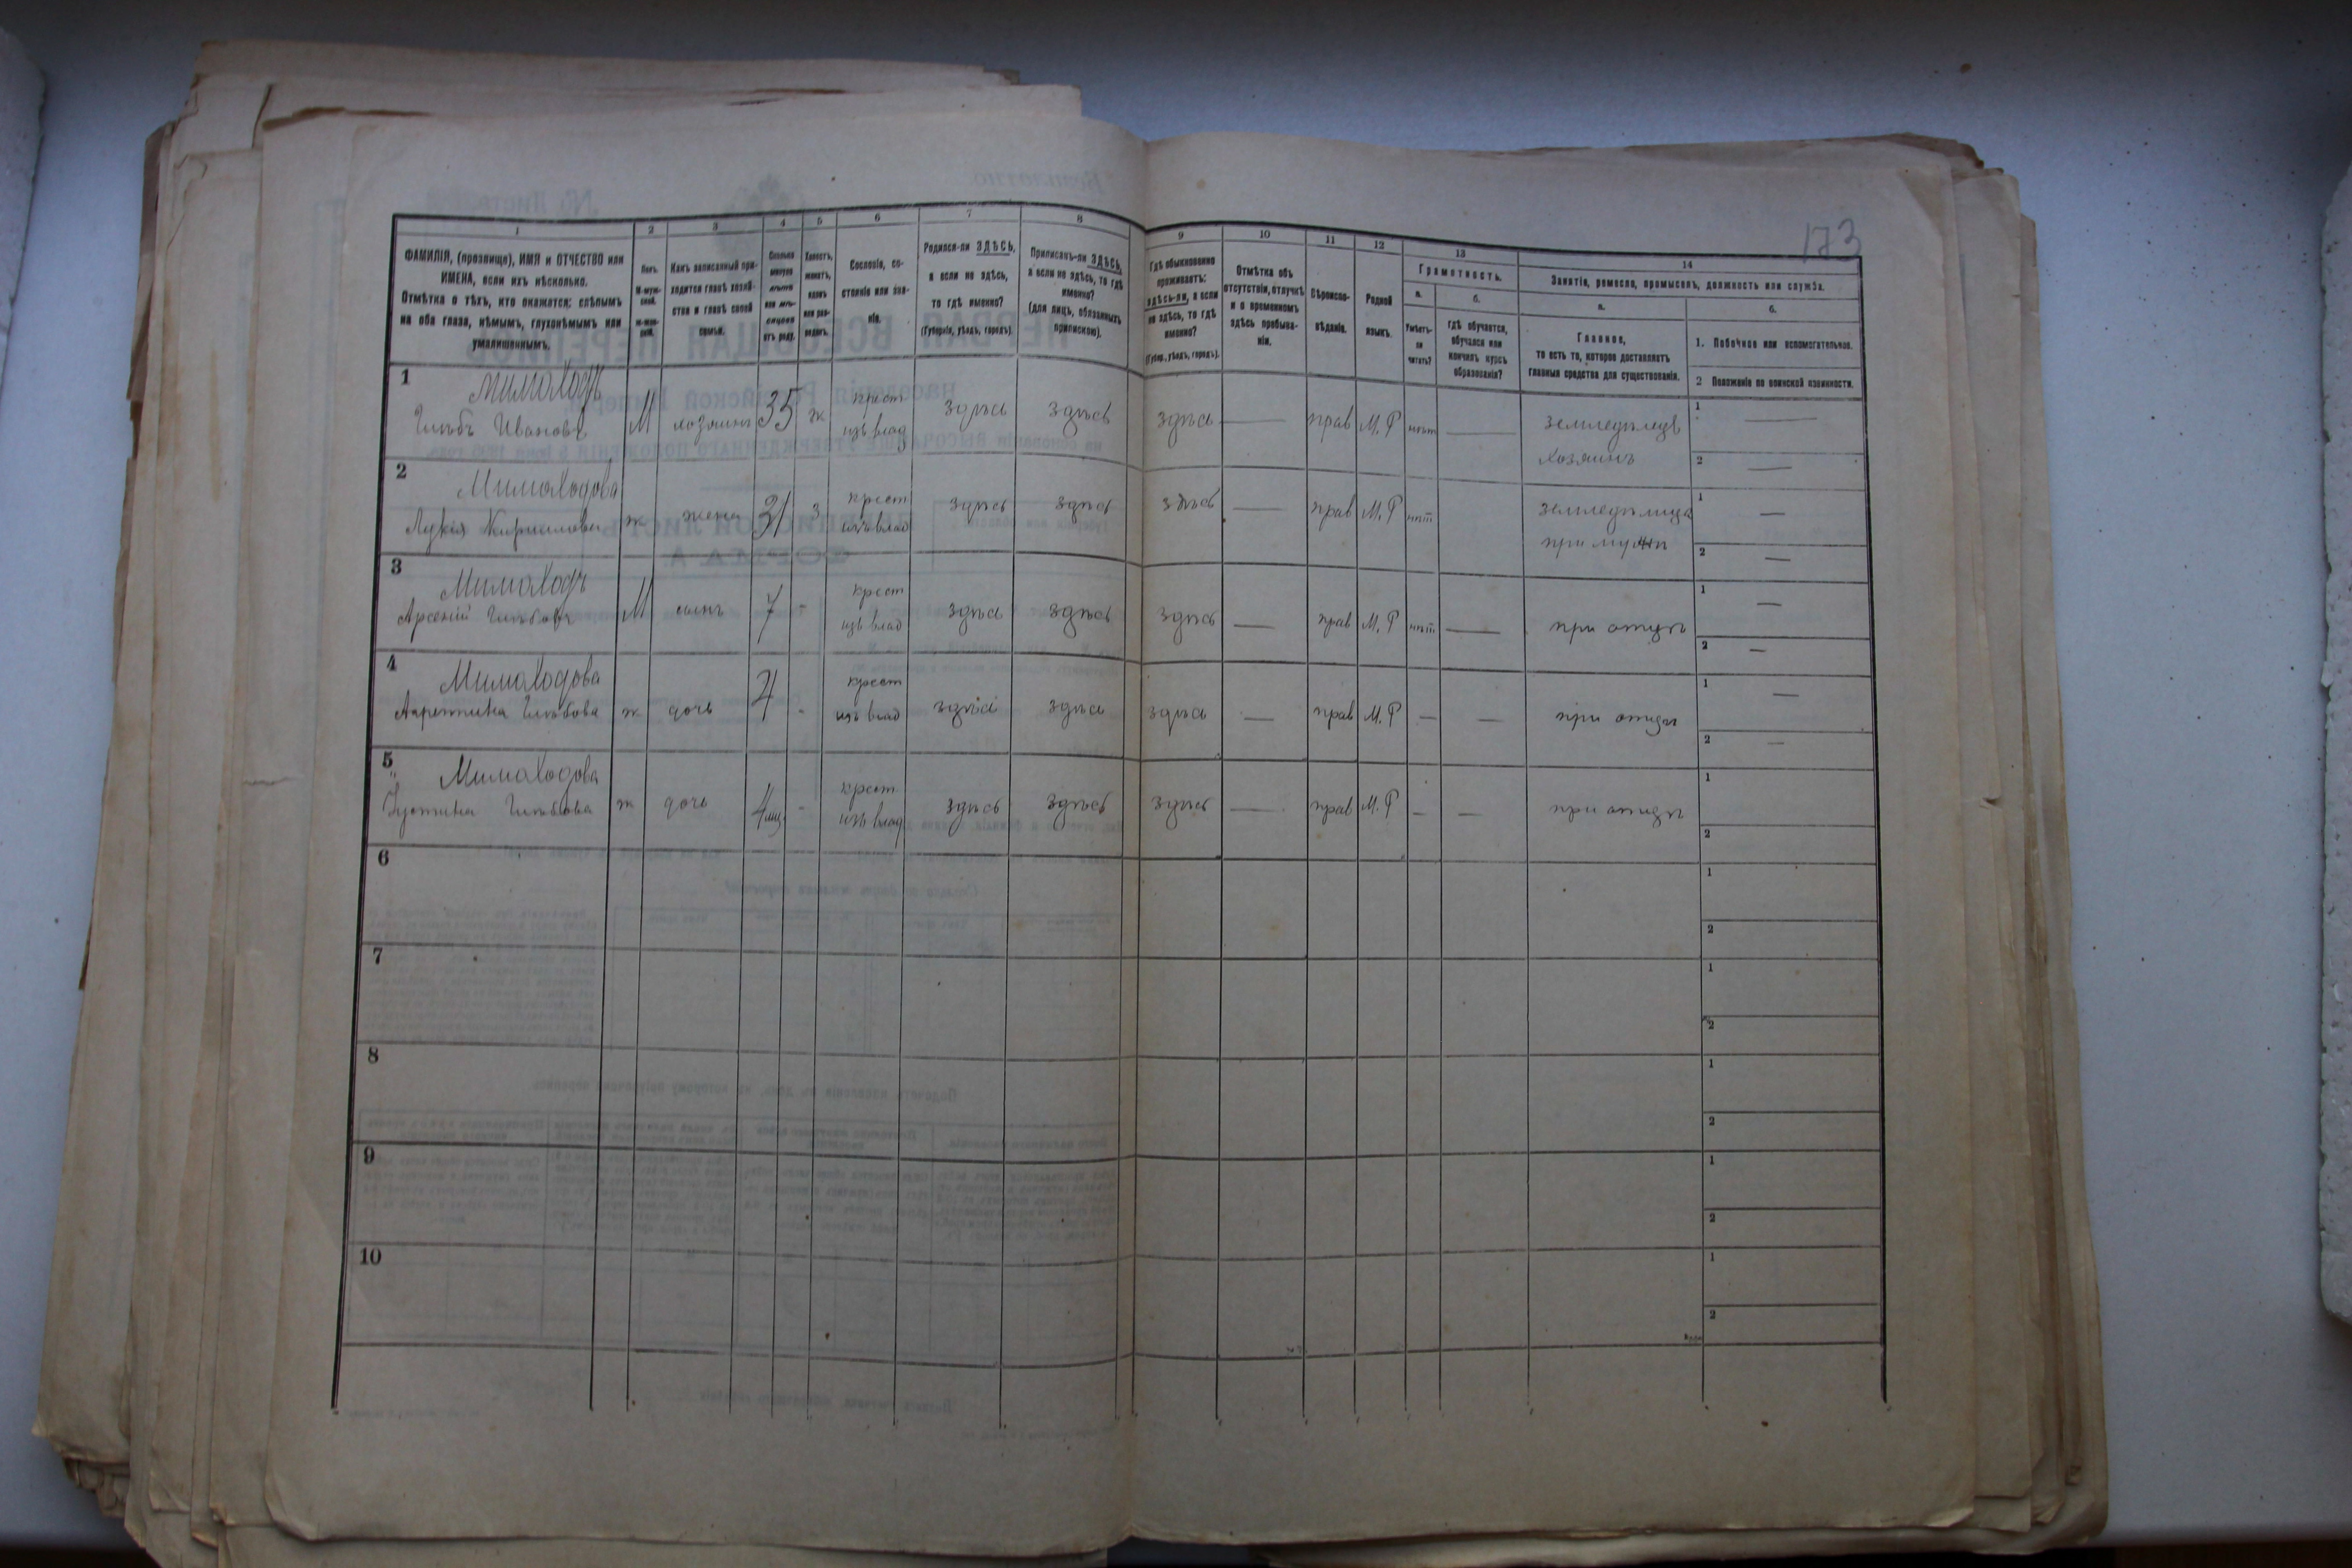 173
1 2 3 4 5 6 7 8 9 10 11 12 13 14
ФАМИЛІЯ, (прозвище), ИМЯ и ОТЧЕСТВО или
ИМЕНА, если ихъ нѣсколько.
Отмѣтка о тѣхъ, кто окажется: слѣпымъ
на оба глаза, нѣмымъ, глухонѣмымъ или
умалишеннымъ.
Полъ.
М-муж-
ской.
ж-жен-
скій.
Какъ записанный при-
ходится главѣ хозяй-
ства и главѣ своей
семьи.
Сколько
минуло
лѣтъ
или мѣ-
сяцевъ
отъ роду.
Холостъ,
женатъ,
вдовъ
или раз-
веденъ.
Сословіе, со-
стояніе или зва-
ніе.
Родился-ли ЗДѢСЬ,
а если не здѣсь,
то гдѣ именно?
(Губернія, уѣздъ, городъ).
Приписанъ-ли ЗДѢСЬ,
а если не здѣсь, то гдѣ
именно?
(для лицъ, обязанныхъ
припискою).
Гдѣ обыкновенно
проживаетъ:
здѣсь-ли, а если
не здѣсь, то гдѣ
именно?
(Губер., уѣздъ, городъ).
Отмѣтка объ
отсутствіи, отлучкѣ
и о временномъ
здѣсь пребыва-
ніи.
Вѣроиспо-
вѣданіе.
Родной
языкъ.
Грамотность.
а.
Умѣетъ-
ли
читать?
б.
гдѣ обучается,
обучался или
кончилъ курсъ
образованія?
Занятіе, ремесло, промыселъ, должность или служба.
а.
Главное,
то есть то, которое доставляетъ
главныя средства для существованія.
б.
1. Побочное или вспомогательное.
2 Положеніе по воинской повинности.
1 Мимоходъ
Глѣбъ Ивановъ М хозяинъ 35 ж крест изъ влад здѣсь здѣсь здѣсь — прав М.Р нѣт — земледѣлецъ хозяинъ 1 — 2 —
2 Мимоходова
Лукія Кирилова ж жена 31 з крест изъ влад здѣсь здѣсь здѣсь — прав М.Р нѣт земледѣлица при мужѣ 1 — 2 —
3 Мимоходъ
Арсеній Глѣбовъ М сынъ 7 - крест изъ влад здѣсь здѣсь здѣсь — прав М.Р нѣт — при отцѣ 1 — 2 —
4 Мимоходова
Глѣбова ж дочь 4 - крест изъ влад здѣсь здѣсь здѣсь — прав М.Р — — при отцѣ 1 — 2 —
5 Мимоходова
Устина Глѣбова ж дочь 4 мц. - крест изъ влад здѣсь здѣсь здѣсь — прав М.Р — — при отцѣ 1 2
6 1 2
7 1 2
8 1 2
9 1 2
10 1 2